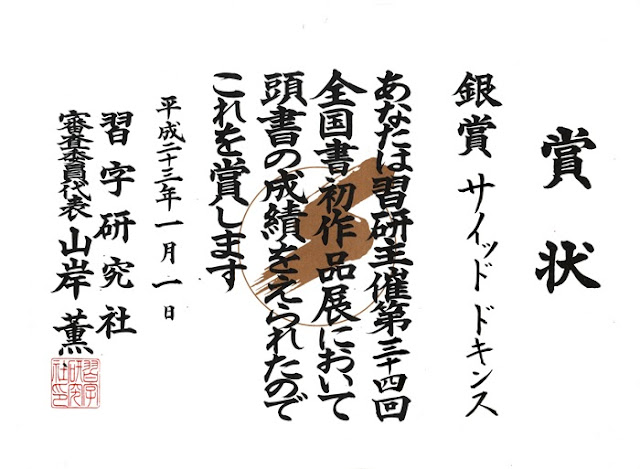 賞状
銀賞 サイッド ドキンス
あなたは習研主催第三十四回
全国書初作品展において
頭書の成績をえられたので
これを賞します
平成二十三年一月一日
習字研究社
審査委員代表 山岸薫
習字研究社印